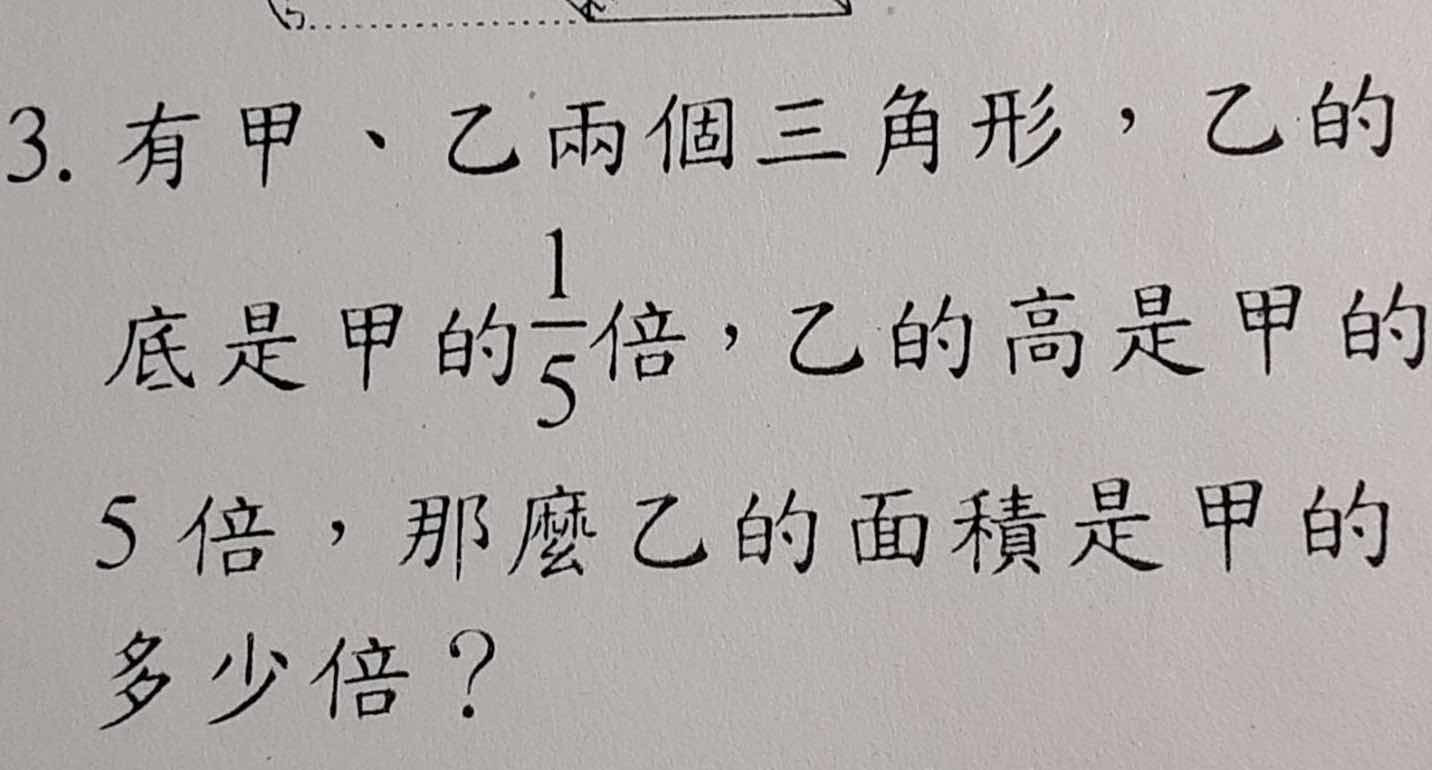 3. 有甲、乙兩個三角形，乙的
底是甲的1/5倍，乙的高是甲的
5倍，那麼乙的面積是甲的
多少倍？